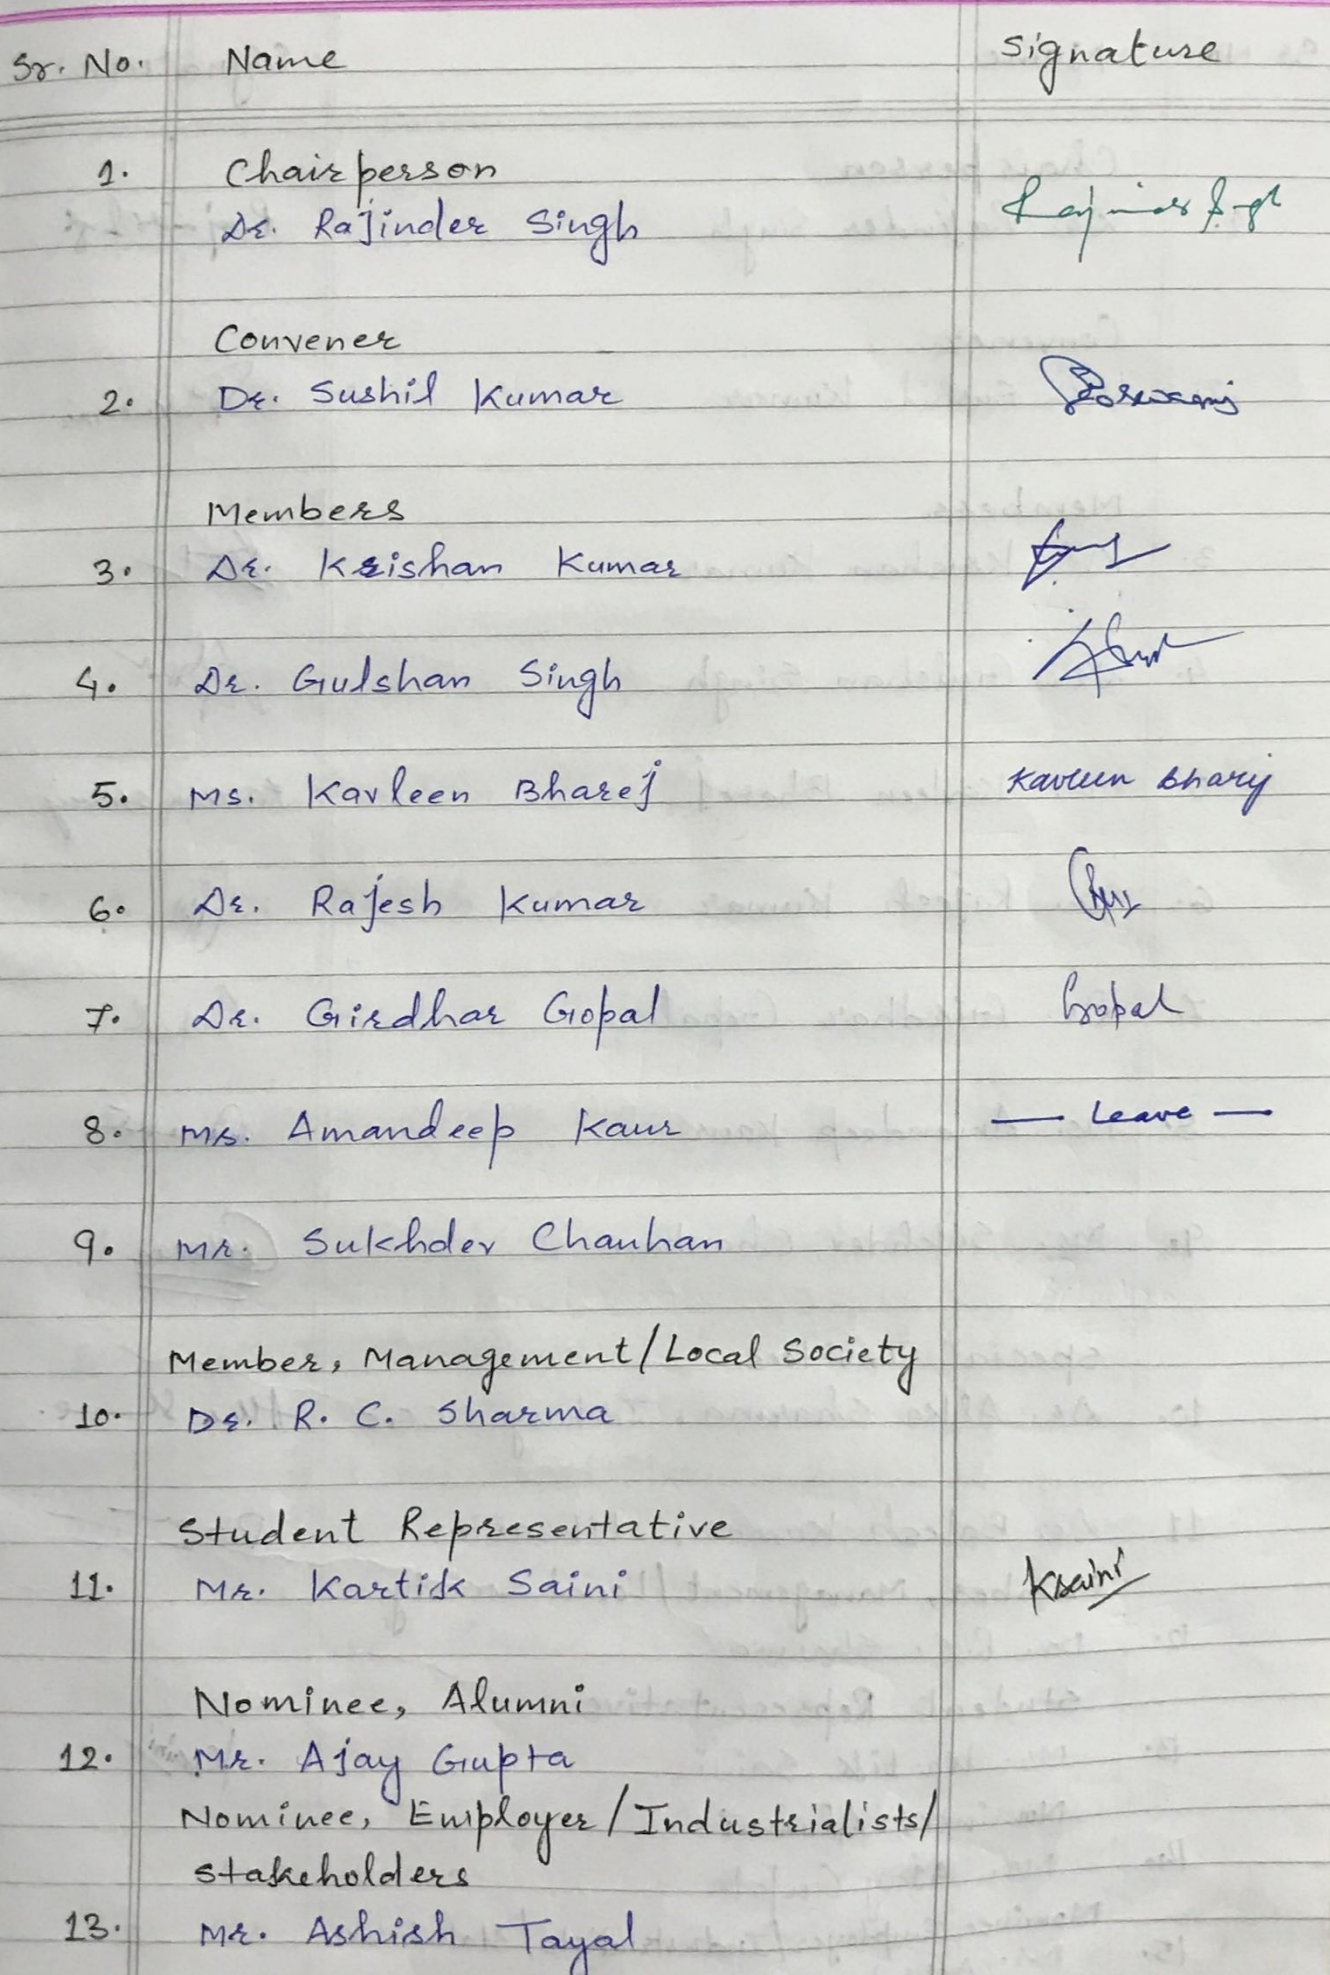 Sr. No. Name Signature
1. Chairperson
Dr. Rajinder Singh Rajinder Singh
Convener
2. Dr. Sushil Kumar
Members
3. Dr. Krishan Kumar
4. Dr. Gulshan Singh
5. Ms. Kavleen Bharej Kavleen Bharej
6. Dr. Rajesh Kumar
7. Dr. Girdhar Gopal Gopal
8. Ms. Amandeep Kaur — Leave —
9. Mr. Sukhdev Chauhan
Member, Management/Local Society
10. Dr. R. C. Sharma
Student Representative
11. Mr. Kartik Saini Ksaini
Nominee, Alumni
12. Mr. Ajay Gupta
Nominee, Employer/Industrialists/
Stakeholders
13. Mr. Ashish Tayal